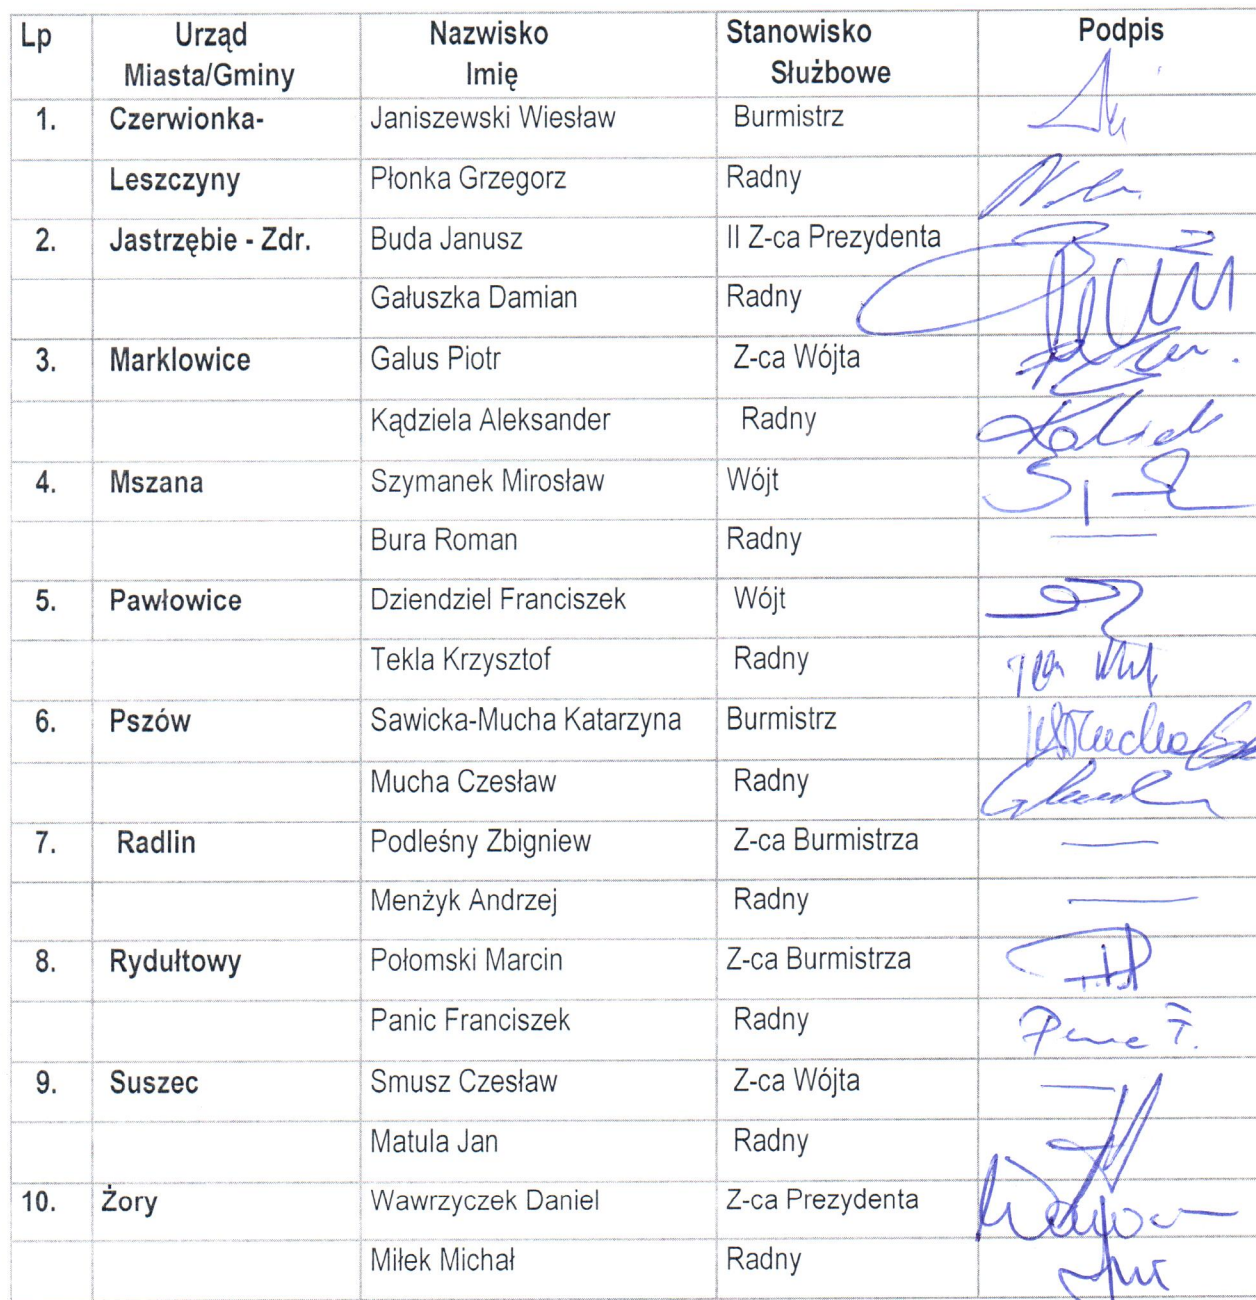 Lp Urząd Nazwisko Stanowisko Podpis
Miasta/Gminy Imię Służbowe
1. Czerwionka- Janiszewski Wiesław Burmistrz
Leszczyny Płonka Grzegorz Radny
2. Jastrzębie - Zdr. Buda Janusz II Z-ca Prezydenta
Gałuszka Damian Radny
3. Marklowice Galus Piotr Z-ca Wójta
Kądziela Aleksander Radny
4. Mszana Szymanek Mirosław Wójt
Bura Roman Radny
5. Pawłowice Dziendziel Franciszek Wójt
Tekla Krzysztof Radny
6. Pszów Sawicka-Mucha Katarzyna Burmistrz
Mucha Czesław Radny
7. Radlin Podleśny Zbigniew Z-ca Burmistrza
Menżyk Andrzej Radny
8. Rydułtowy Połomski Marcin Z-ca Burmistrza
Panic Franciszek Radny
9. Suszec Smusz Czesław Z-ca Wójta
Matula Jan Radny
10. Żory Wawrzyczek Daniel Z-ca Prezydenta
Miłek Michał Radny